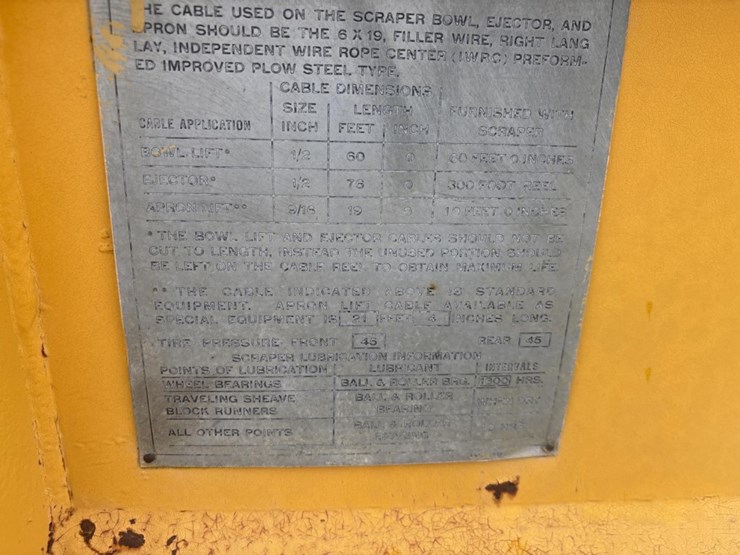 HE CABLE USED ON THE SCRAPER BOWL, EJECTOR, AND
PRON SHOULD BE THE 6 X 19, FILLER WIRE, RIGHT LANG
LAY, INDEPENDENT WIRE ROPE CENTER (IWRC) PREFORM-
ED IMPROVED PLOW STEEL TYPE.
CABLE DIMENSIONS
SIZE LENGTH FURNISHED WITH
CABLE APPLICATION INCH FEET INCH SCRAPER
BOWL LIFT* 1/2 60 0 60 FEET 0 INCHES
EJECTOR* 1/2 78 0 300 FOOT REEL
APRON LIFT** 9/16 19
* THE BOWL LIFT AND EJECTOR CABLES SHOULD NOT BE
CUT TO LENGTH, INSTEAD THE UNUSED PORTION SHOULD
BE LEFT ON THE CABLE REEL TO OBTAIN MAXIMUM LIFE
** THE CABLE INDICATED ABOVE IS STANDARD
EQUIPMENT. APRON LIFT CABLE AVAILABLE AS
SPECIAL EQUIPMENT IS 21 FEET INCHES LONG.
TIRE PRESSURE - FRONT 45 REAR 45
SCRAPER LUBRICATION INFORMATION
POINTS OF LUBRICATION LUBRICANT INTERVALS
WHEEL BEARINGS BALL & ROLLER BRG. HRS.
TRAVELING SHEAVE BALL & ROLLER
BLOCK RUNNERS BEARING
ALL OTHER POINTS BALL & ROLLER
BEARING